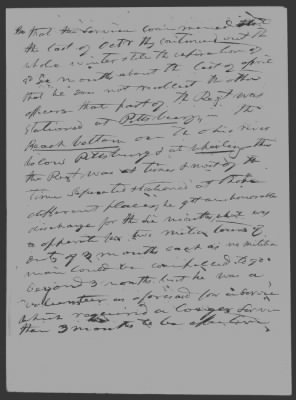 that the service commenced
the last of Octr they continued out the
whole winter till the expiration of
six month about the last of april
that he does not recollect the other
officers that part of the Regt was
stationed at Pittsburg, the
bottom on the ohio river
below Pittsburg & at the
the Regt was at times & most of the
time seperate stationed at
different places, he got an honorable
discharge for the six months, was
two militia tours of
duty of 3 months each as no militia
man could be compelled to go
beyond 3 months but he was a
volunteer as aforesaid for a service
which required a longer service
than 3 months to be effective